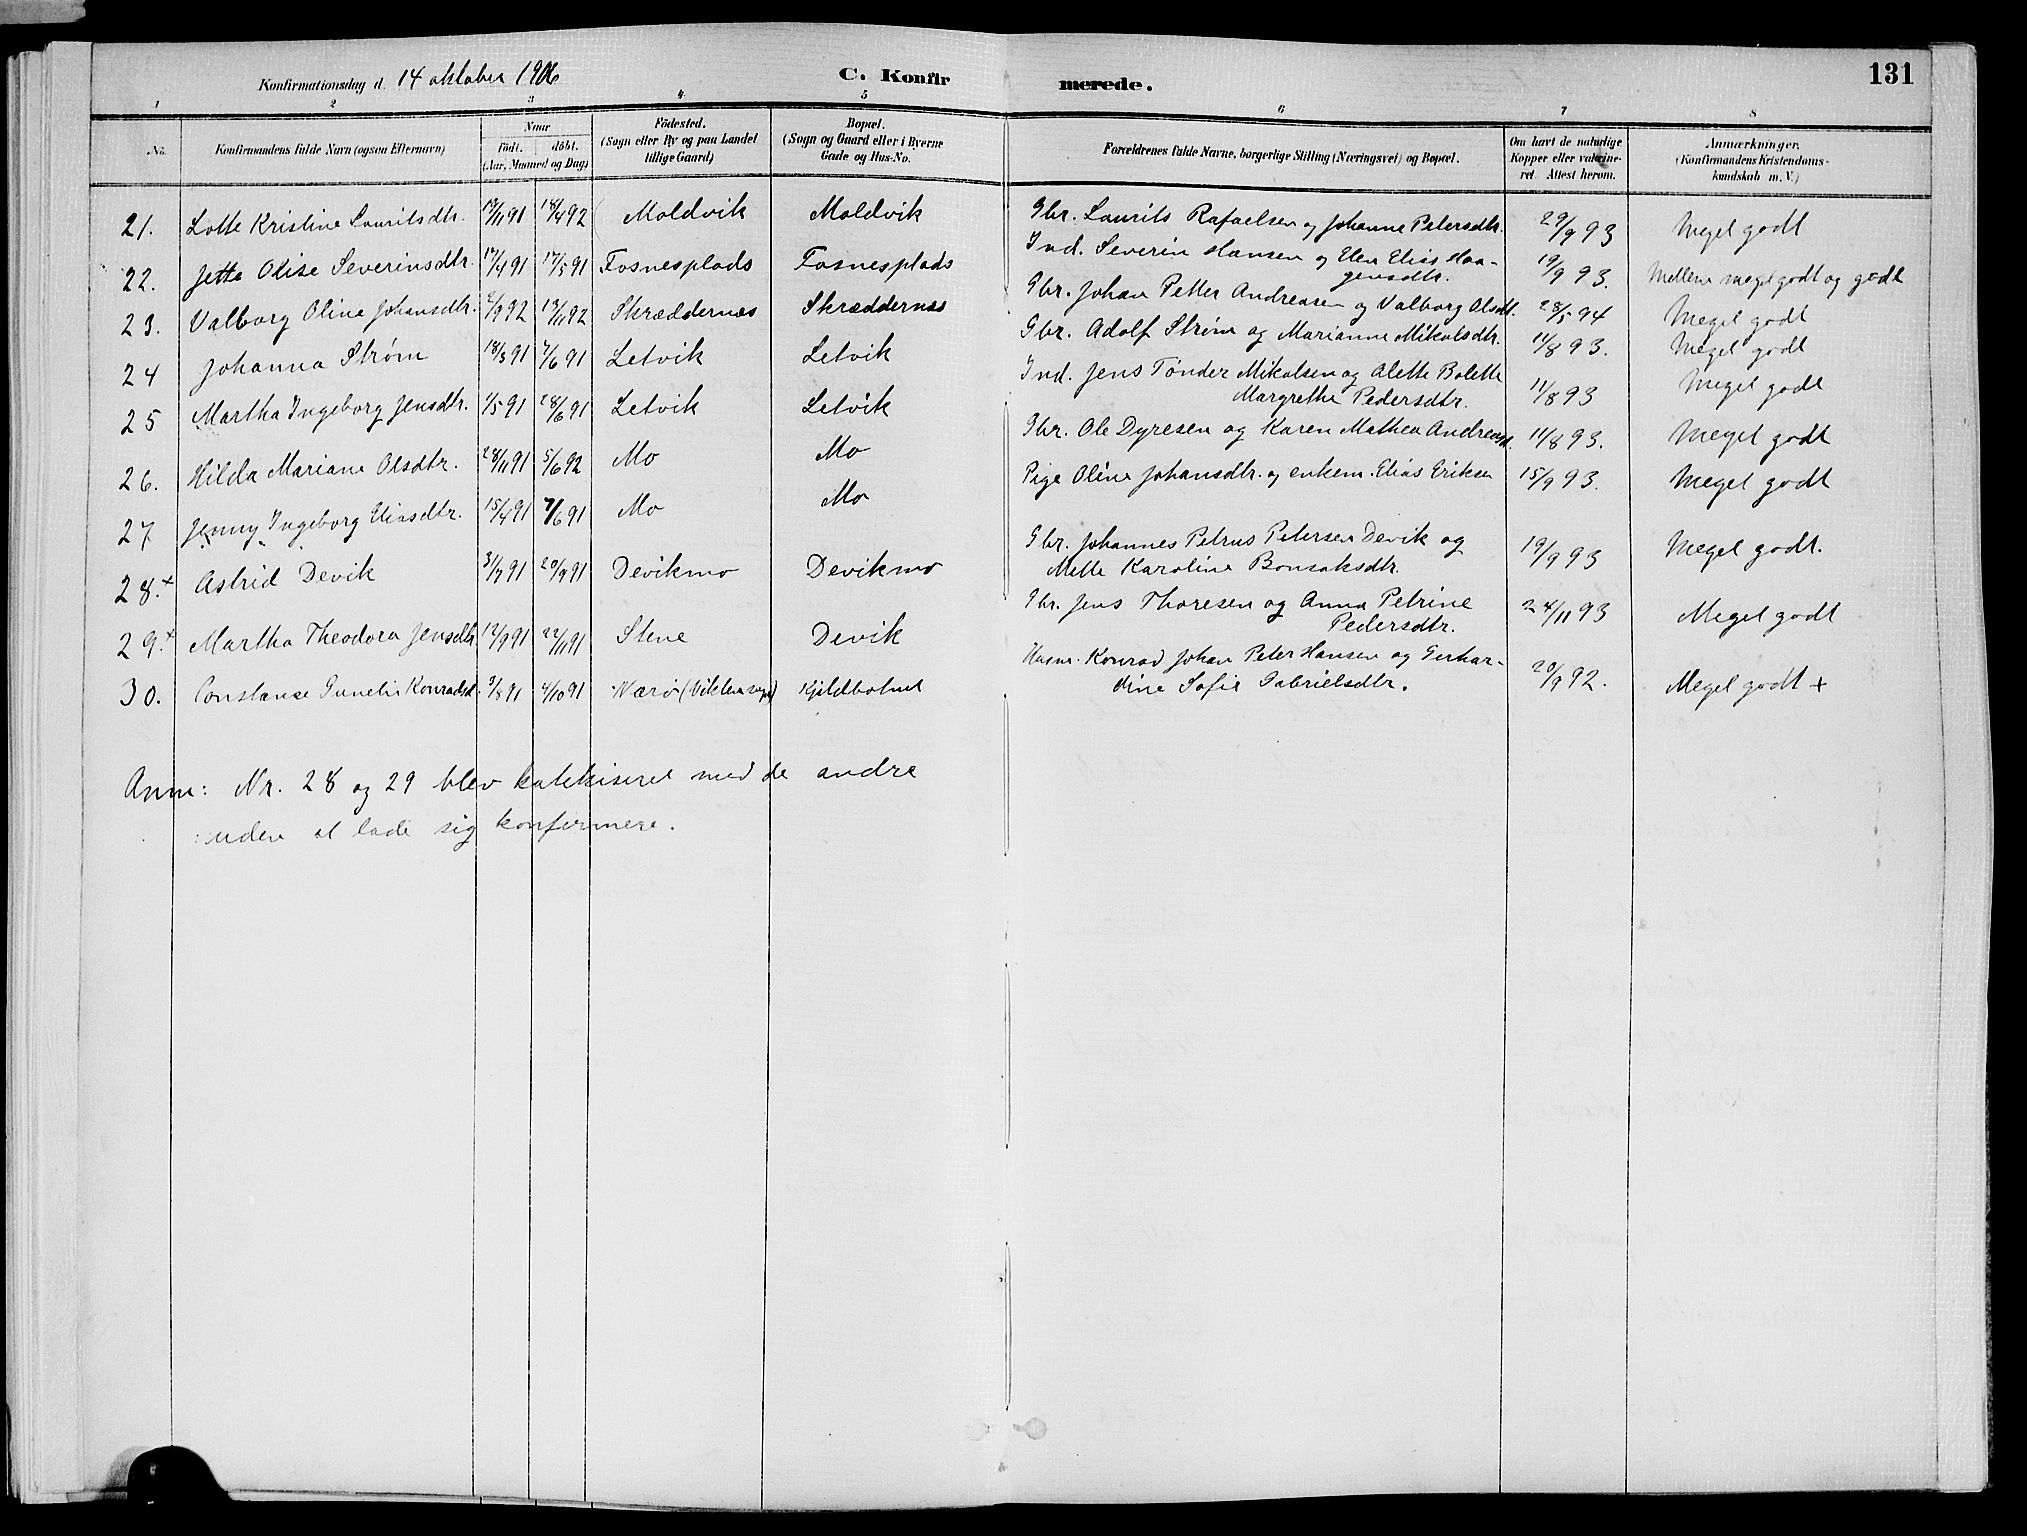 Konfirmationsdag d. 14 oktober 1906 C. Konfirmerede. 131
1 2 3 4 5 6 7 8
No. Konfirmandens fulde Navn (ogsaa Efternavn) Naar Födt. döbt. (Aar, Maaned og Dag) Födested. (Sogn eller By og paa Landet tillige Gaard) Bopæl. (Sogn og Gaard eller i Byerne Gade og Hus-No. Forældrenes fulde Navne, borgerlige Stilling (Næringsvei) og Bopæl. Om havt de naturlige Kopper eller vaccineret. Attest herom. Anmærkninger. (Konfirmandens Kristendomskundskab m. V.)
21. Lotte Kristine Lauritsdtr. 19/11 91 18/4 92 Moldvik Moldvik Gbr. Laurits Rafaelsen og Johanne Petersdtr. 29/9 93 Meget godt
22. Jette Olise Severinsdtr. 17/4 91 17/5 91 Fosnesplads Fosnesplads Ind. Severin Hansen og Elen Elise Haa-
gensdtr. 19/9 93. Mellem meget godt og godt
23. Valborg Oline Johansdtr. 2/9 92 13/11 92 Skræddernes Skræddernes Gbr. Johan Petter Andreasen og Valborg Olsdt. 28/5 94 Meget godt
24 Johanna Strøm 18/3 91 7/6 91 Letvik Letvik Gbr. Adolf Strøm og Marianne Mikalsdtr. 11/8 93. Meget godt
25 Martha Ingeborg Jensdtr. 1/5 91 28/6 91 Letvik Letvik Ind. Jens Tønder Mikalsen og Alette Bolette
Margrethe Pedersdtr. 11/8 93 Meget godt
26. Hilda Mariane Olsdtr. 28/11 91 5/6 92 Mo Mo Gbr. Ole Dyresen og Karen Mathea Andreasd. 11/8 93. Meget godt
27 Jenny Ingeborg Eliasdtr. 15/4 91 7/6 91 Mo Mo Pige Oline Johansdtr. og enkem. Elias Eriksen 15/9 93. Meget godt
28.+ Astrid Devik 31/7 91 20/9 91 Devikmo Devikmo Gbr. Johannes Petrus Petersen Devik og
Mette Karoline Bonsaksdtr. 19/9 93 Meget godt.
29.+ Martha Theodora Jensdtr 12/9 91 22/11 91 Stene Devik Gbr. Jens Thoresen og Anna Petrine
Pedersdtr. 24/11 93 Meget godt
30. Constanse Konradsd. 3/8 91 4/10 91 Nærö (Viktens sogn) Kjeldholmt Husm. Konrad Johan Peter Hansen og Gerhar-
dine Sofie Gabrielsdtr. 20/9 92. Meget godt +
Anm: Nr. 28 og 29 blev katekiseret med de andre
uden at lade sig konfirmere.